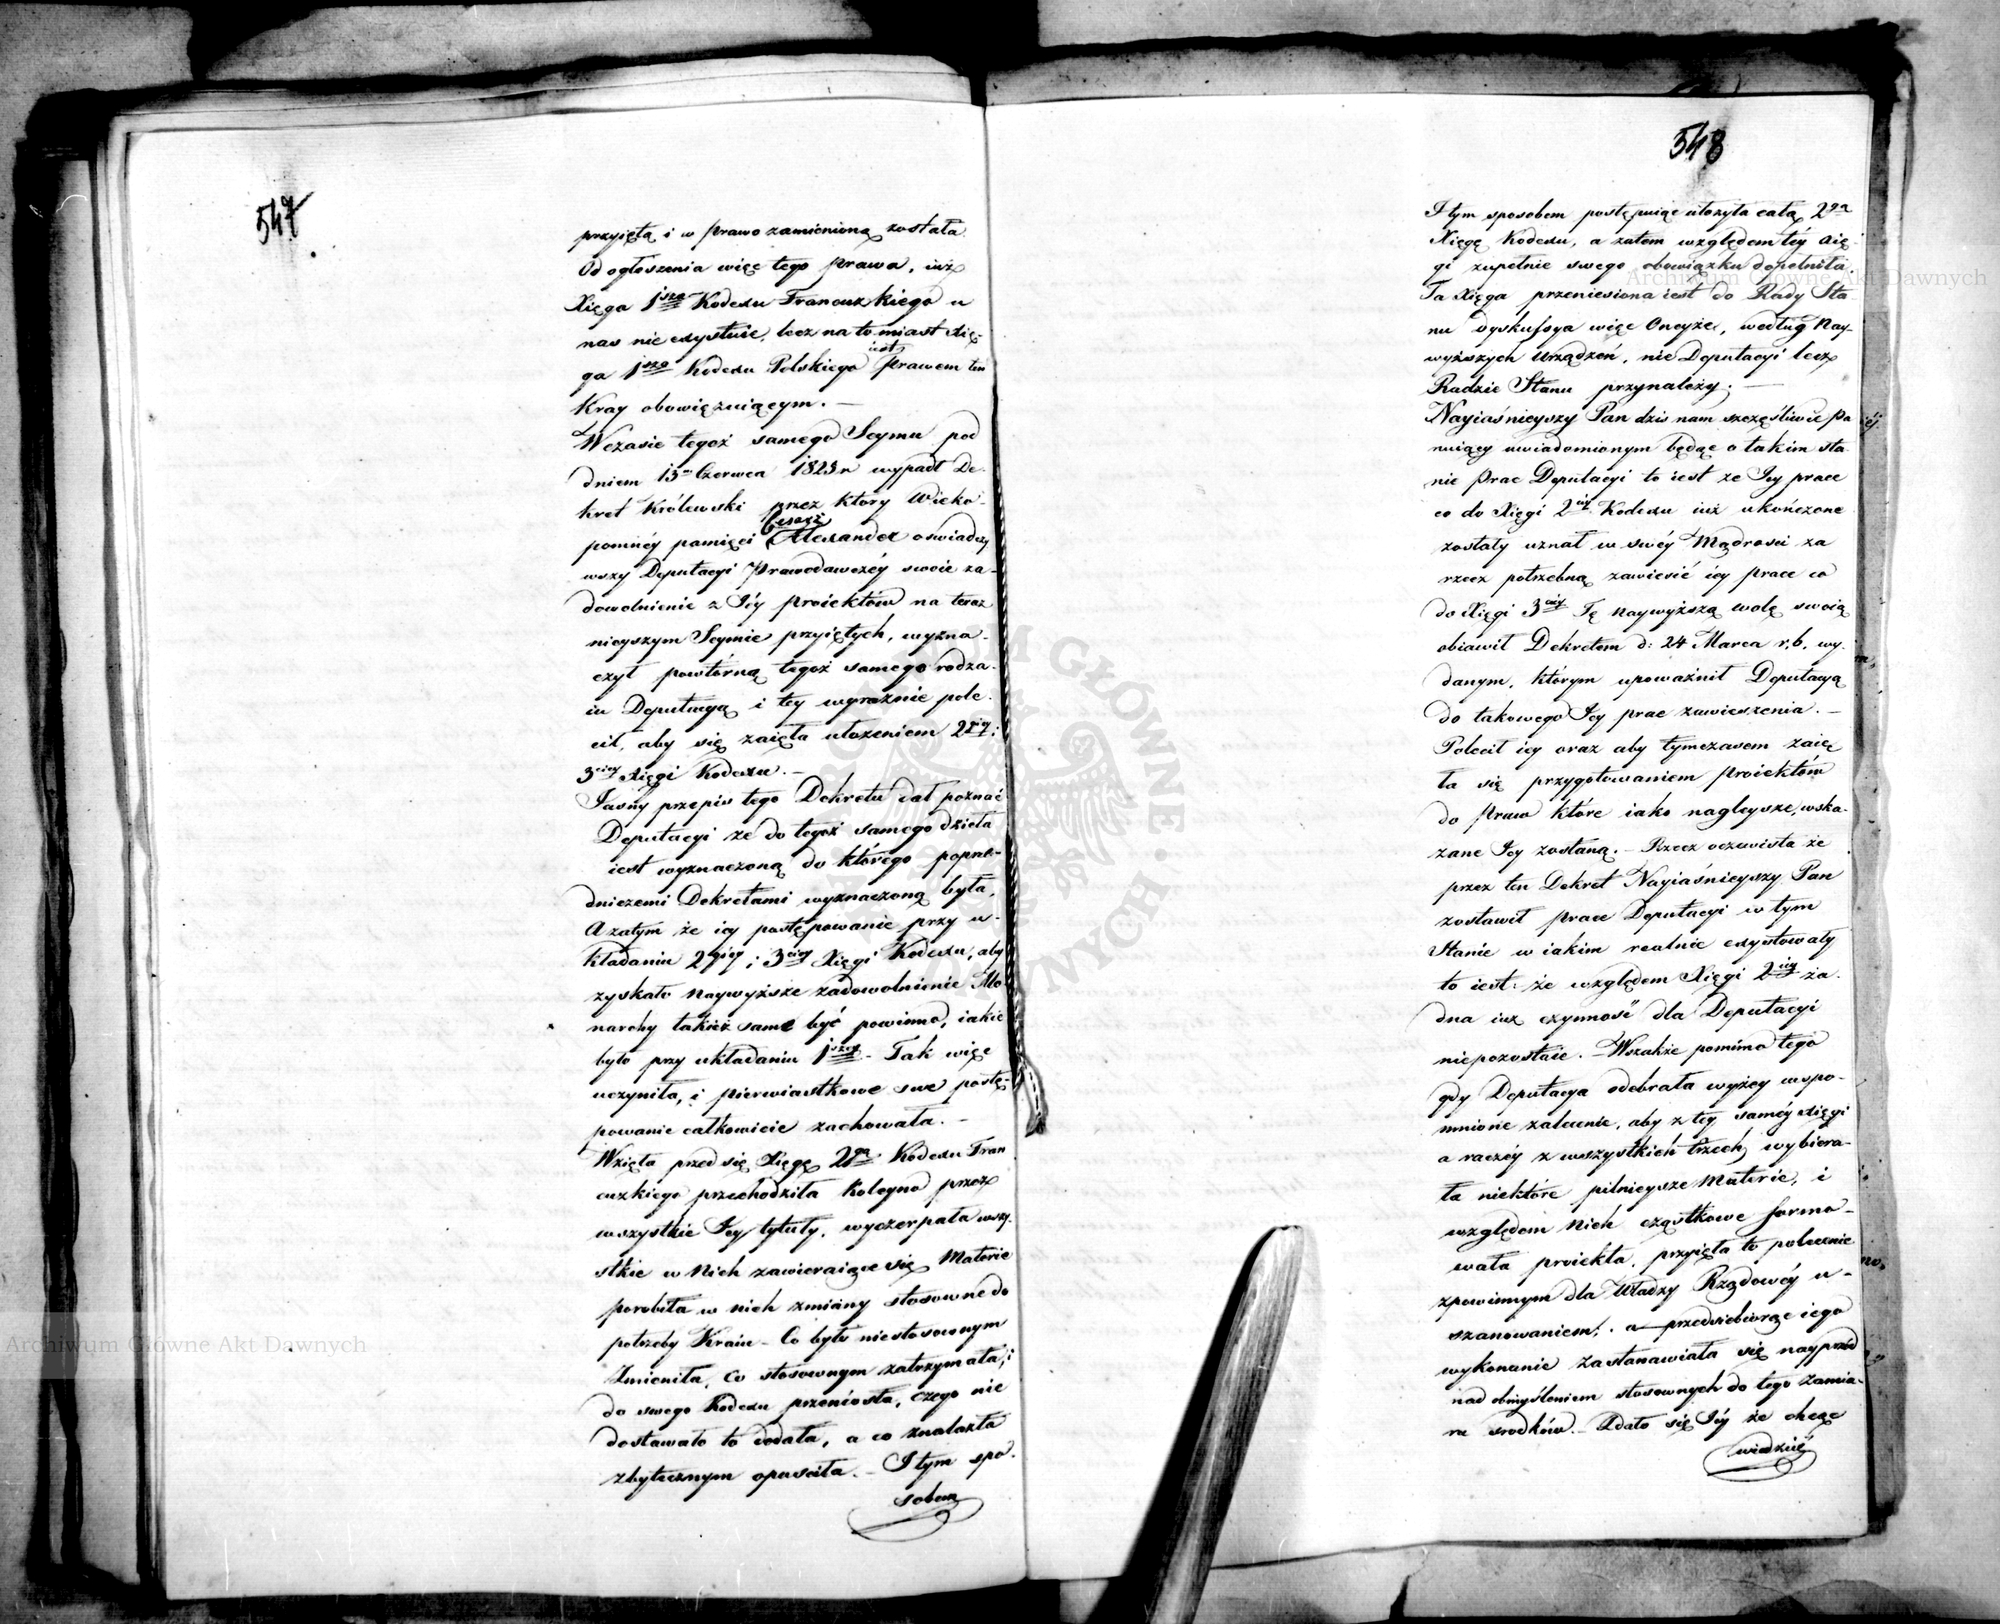 547
przyiętą i w Prawo zamienioną została
Od ogłoszenia więc tego Prawa, iuż
Xięga 1sza Kodexu Francuzkiego u
nas nie exystuie, lecz na to miast Xię-
ga 1sza Kodexu Polskiego iest Prawem ten
Kray obowięzuiącym. —
W czasie tegoż samego Seymu pod
dniem 13 Czerwca 1825 r wypadł De-
kret Królewski przez który Wieko-
pomnéy pamięci Cesarz Alexander oswiadczy
wszy Deputacyi Prawodawczéy swoie za-
dowolnienie z Jéy Proiektów na teraz
nieyszym Seymie przyiętych, wyzna-
czył powtórną tegoż samego rodza-
iu Deputacyą i tey wyraźnie pole-
cił, aby się zaięła ułożeniem 2giey i
3ciey Xięgi Kodexu. —
Jasny przepis tego Dekretu dał poznać
Deputacyi że do tegoż samego dzieła
iest wyznaczoną do którego poprze-
dniczemi Dekretami wyznaczoną była,
A zatym że iey postępowanie przy u-
kładaniu 2giey i 3ciey Xięgi Kodexu, aby
zyskało naywyższe zadowolnienie Mo-
narchy takież same być powinno, iakie
było przy układaniu 1szey — Tak więc
uczyniła, i pierwiastkowe swe postę-
powanie całkowicie zachowała. —
Wzięła przed się Xięgę 2gą Kodexu Fran
cuzkiego przechodziła koleyno przez
wszystkie Jey tytuły, wyczerpała wszy-
stkie w Nich zawieraiące się Materie
porobiła w nich zmiany stosowne do
potrzeby Kraiu — Co było niestosownym
Zmieniła, Co stosownym zatrzymała, i
do swego Kodexu przeniosła, czego nie
dostawało to dodała, a co znalazła
zbytecznym opuściła. — I tym spo-
sobem
548
I tym sposobem postępuiąc ułożyła całą 2gą
Xięgę Kodexu, a zatem względem téy Xię-
gi zupełnie swego obowiązku dopełniła.
Ta Xięga przeniesiona iest do Rady Sta-
nu dyskussya więc Oneyże, według Nay-
wyższych Urządzeń, nie Deputacyi lecz
Radzie Stanu przynależy. —
Nayiaśnieyszy Pan dziś nam szczęśliwie Pa-
nuiący uwiadomionym będąc o takim sta-
nie Prac Deputacyi to iest że Jey prace
co do Xięgi 2iéy Kodexu iuż ukończone
zostały uznał w swéy Mądrosci za
rzecz potrzebną zawiesić iey prace co
do Xięgi 3ciéy Tę Naywyższą wolę swoią
obiawił Dekretem d: 24 Marca r. b. wy-
danym, którym upoważnił Deputacyą
do takowego Jey prac zawieszenia. —
Polecił iey oraz aby tymczasem zaię
ła się przygotowaniem Proiektów
do Praw które iako nagleysze, wska-
zane Jey zostaną. — Rzecz oczewista że
przez ten Dekret Nayiaśnieyszy Pan
zostawił prace Deputacyi w tym
Stanie w iakim realnie exystowały
to iest: że względem Xięgi 2iey ża-
dna iuż czynność dla Deputacyi
niepozostaie. — Wszakże pomimo tego
gdy Deputacya odebrała wyżey wspo-
mnione zalecenie, aby z téy saméy Xięgi
a raczéy z wszystkich trzech wybiera-
ła niektóre pilnieysze Materie, i
względem Nich cząstkowe formo-
wała proiekta, przyięła to polecenie
z powinnym dla Władzy Rządowéy u-
szanowaniem, a przedsiebiorąc iego
wykonanie Zastanawiała się nayprzód
nad obmyśleniem stosownych do tego Zamia-
ru srodków. — Zdało się Jéy że chcąc
wiedzieć
Archiwum Główne Akt Dawnych
Archiwum Główne Akt Dawnych